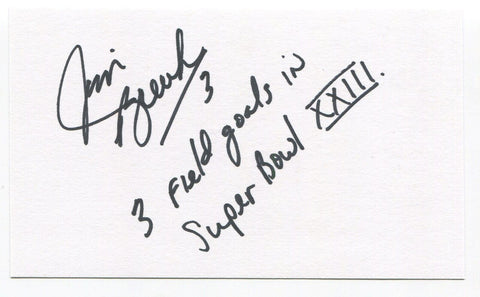 Jim
Breech/3
3 Field goals in
Super Bowl XXIII.